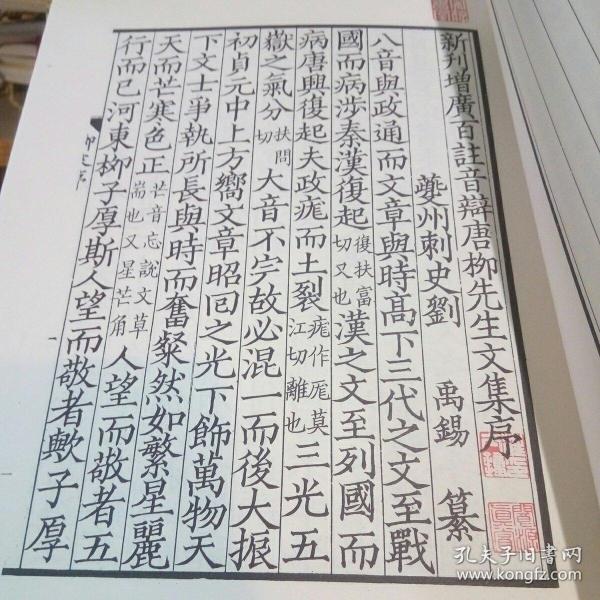 新刋增廣百註音辯唐柳先生文集序
夔州刺史劉 禹錫 纂
八音與政通而文章與時髙下三代之文至戰
國而病涉秦漢復起復扶富切又也漢之文至列國而
病唐興復起夫政痝而土裂痝作厖莫江切離也三光五
嶽之氣分扶問切大音不完故必混一而後大振
初貞元中上方嚮文章昭回之光下飾萬物天
下文士爭執所長與時而奮粲然如繁星麗
天而芒寒色正芒音忘說文草耑也又星芒角人望而敬者五
行而已河東栁子厚斯人望而敬者歟子厚
孔夫子旧书网
www.kongfz.com